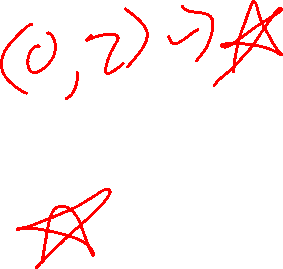 (0,2) → ☆
☆